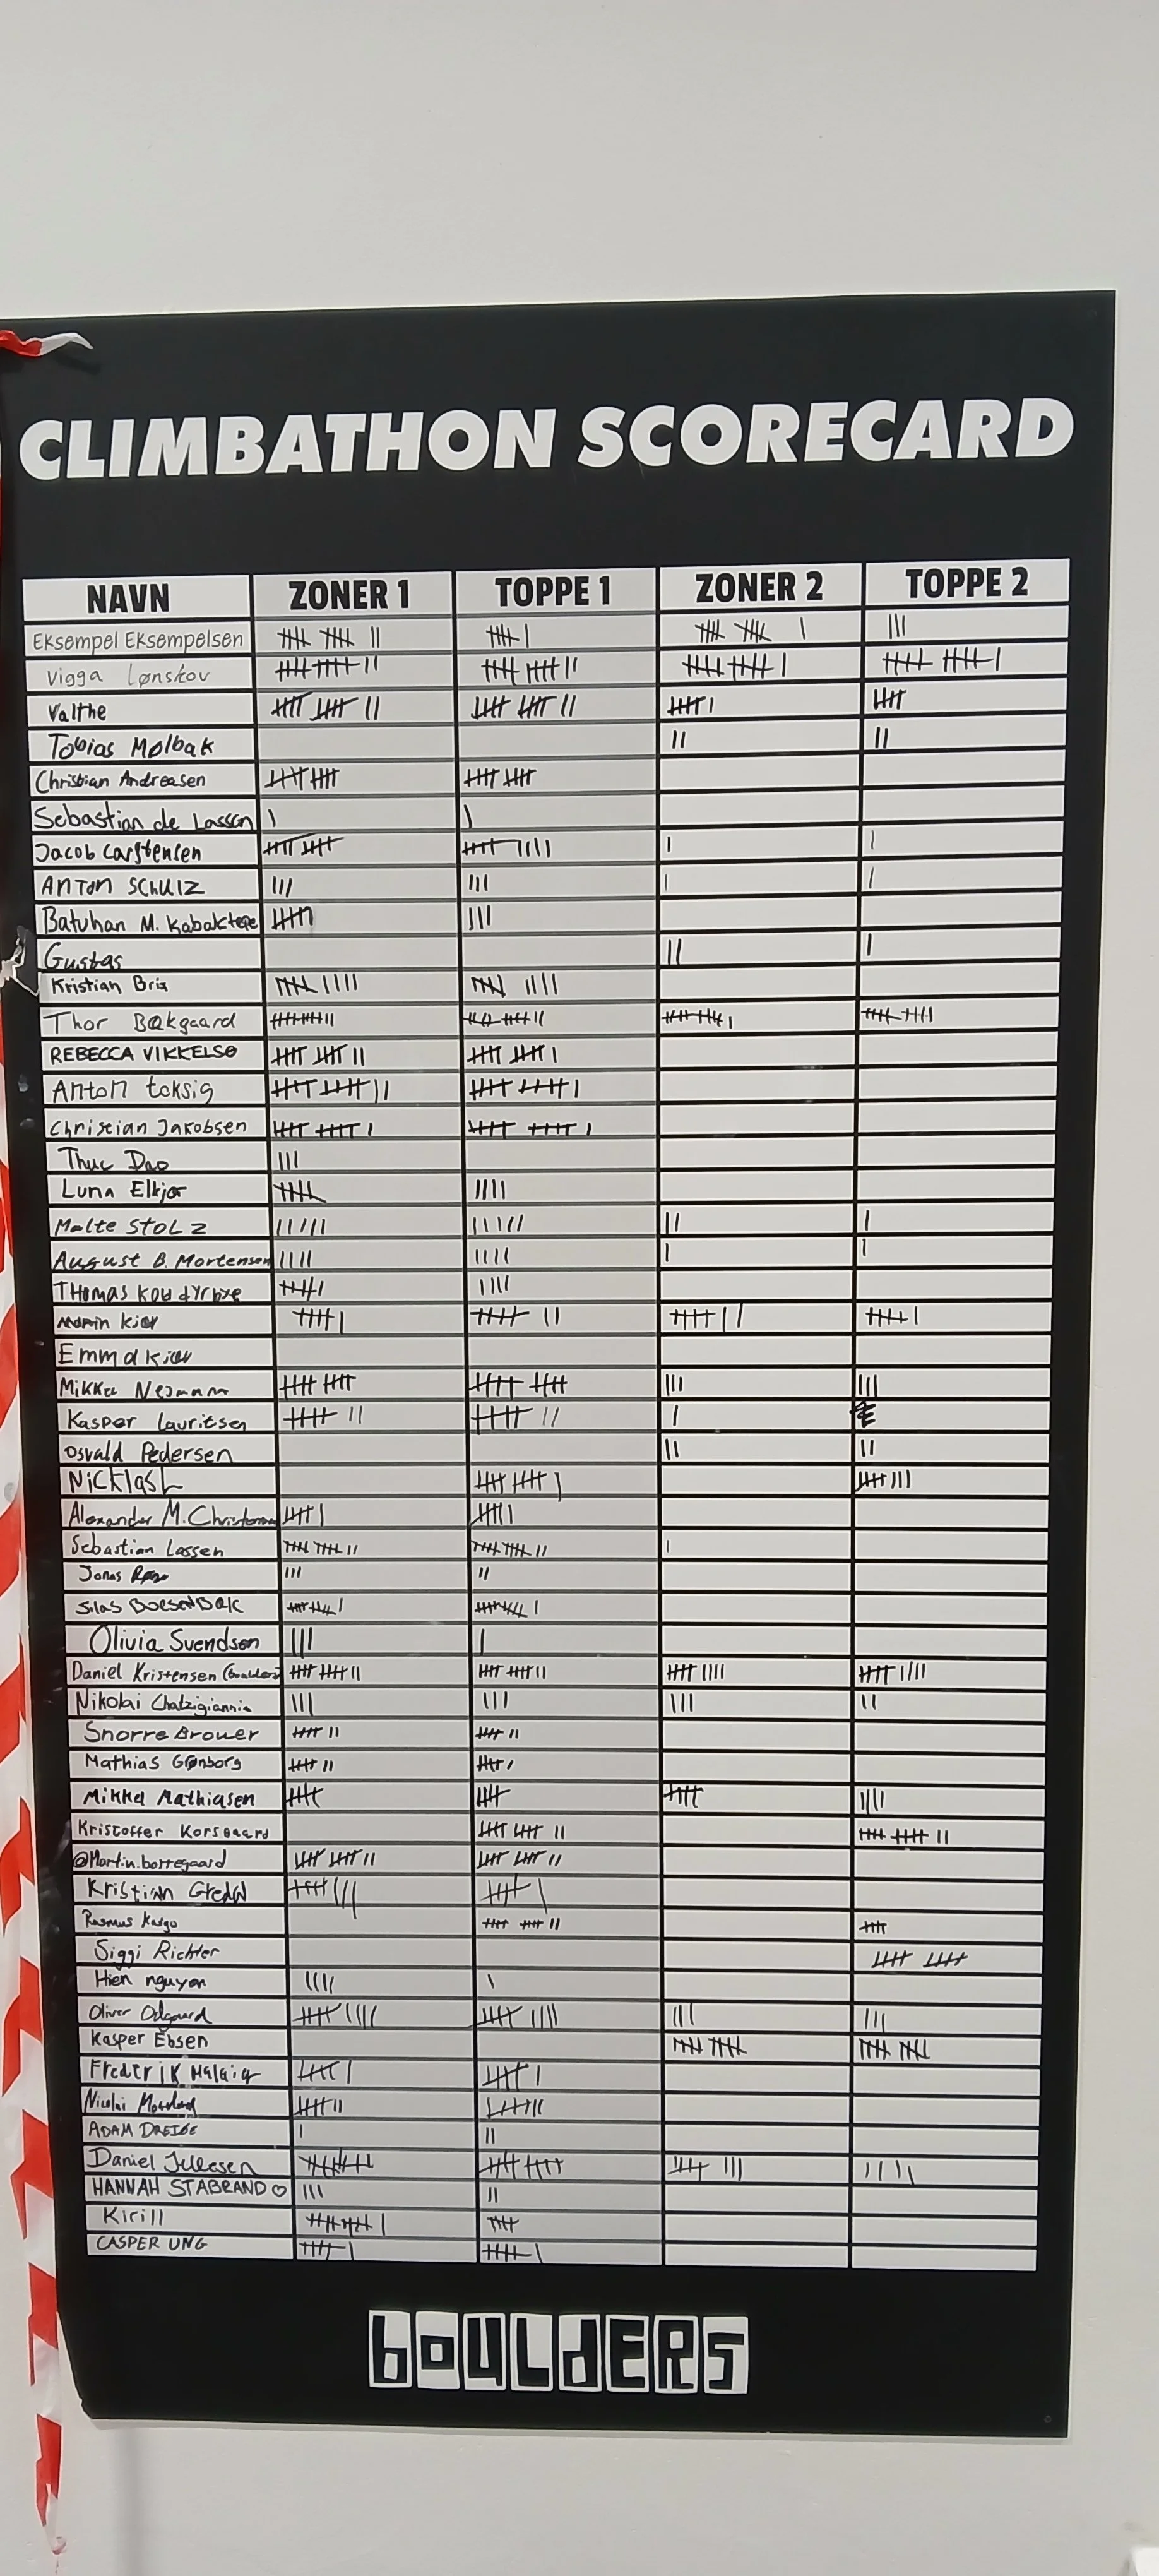 CLIMBATHON SCORECARD
NAVN ZONER 1 TOPPE 1 ZONER 2 TOPPE 2
Eksempel Eksempelsen
Vigga Lønskov
Valthe
Tobias Mølbak
Christian Andreasen
Sebastian de Lassen
Jacob Carstensen
ANTON SCHULZ
Batuhan M. Kabaktepe
Gustas
Kristian Brix
Thor Bækgaard
REBECCA VIKKELSØ
Anton toksig
Christian Jakobsen
Thuc Dao
Luna Elkjær
Malte STOLZ
August B. Mortensen
THOMAS
kier
Emma kier
Mikkel
Kasper Lauritsen
Osvald Pedersen
Nicklas L
Alexander M.
Sebastian Lassen
Jonas
Silas
Olivia Svendsen
Daniel Kristensen (boulders)
Nikolai Chatzigiannis
Snorre Brouer
Mathias Grønborg
Mikkel Mathiasen
Kristoffer Korsgaard
@Martin.borregaard
Kristian
Rasmus
Siggi Richter
Hien nguyen
Oliver Odgaard
Kasper Ebsen
Frederik
Nicolai
ADAM
Daniel
HANNAH STABRAND ♡
Kirill
CASPER UNG
bOULdERS